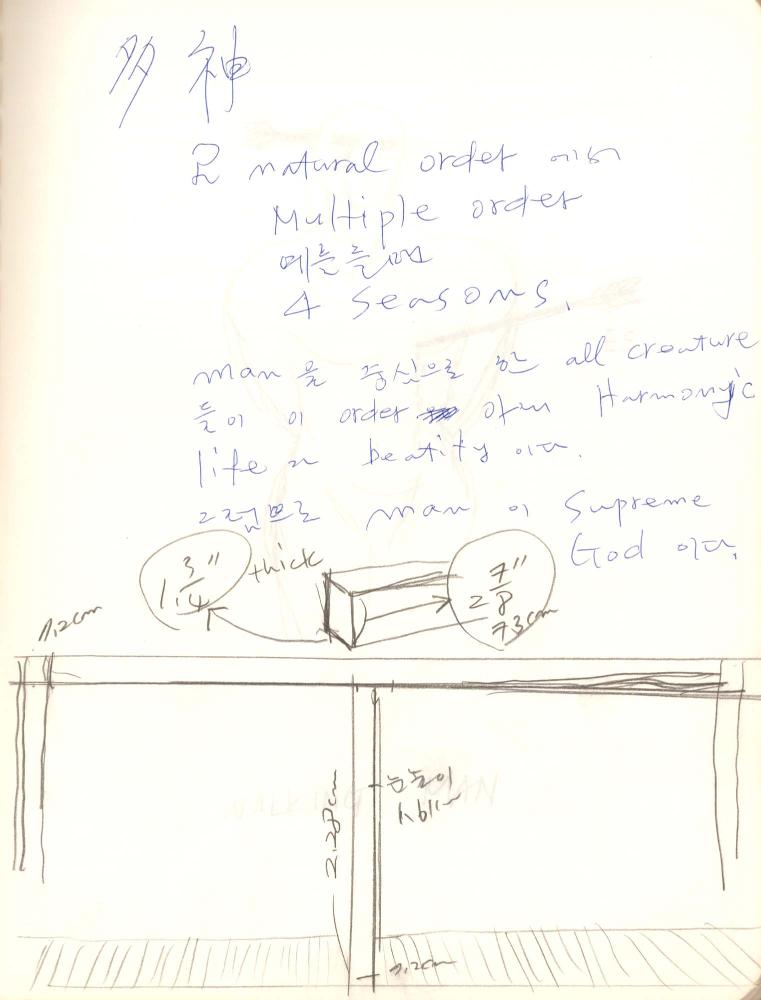 多神
은 natural order 에서
Multiple order
예를들면
4 seasons.
man 을 중심으로 한 all creature
들이 이 order 아래 Harmonyic
life 가 beatity 이다.
그럼므로 man 이 Supreme
God 이다.
1 3/4" thick
2 7/8"
73cm
7.2cm
2.28cm
눈높이
7.2cm
WALKING MAN